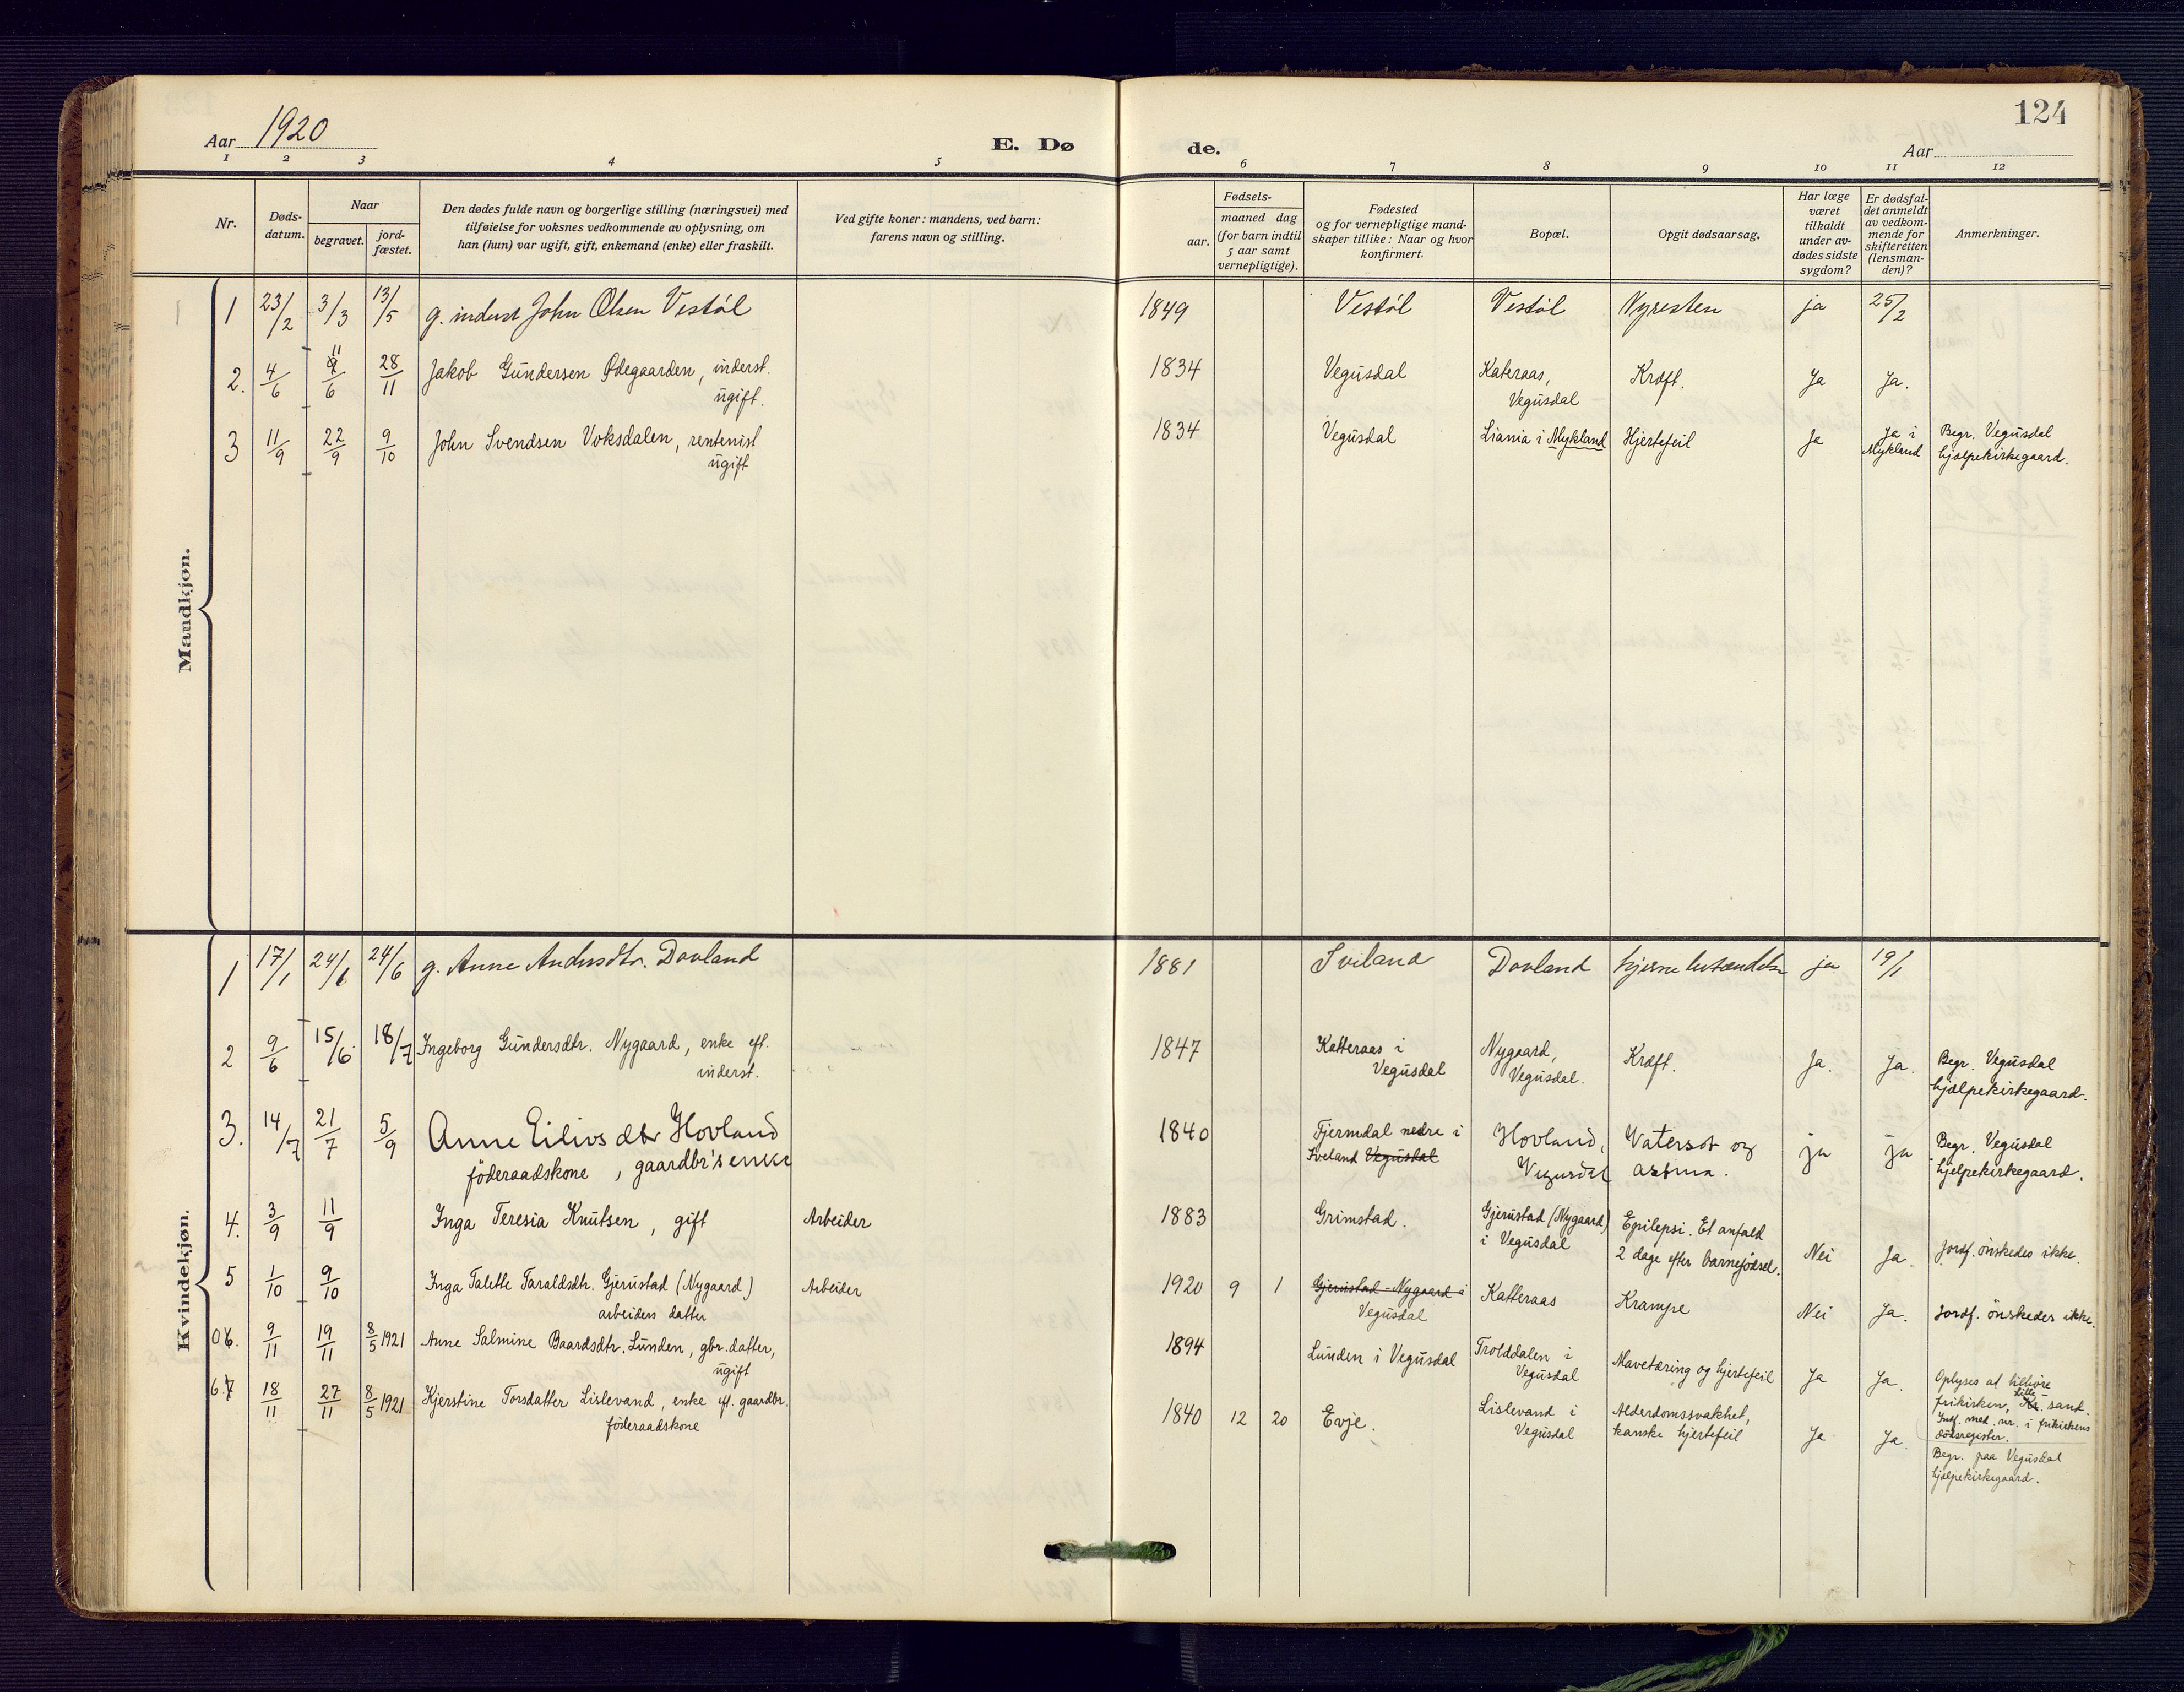 124
Aar 1920
E. Dø
de.
Aar
1 2 3 4 5 6 7 8 9 10 11 12
Nr.
Døds-
datum.
Naar
begravet.
jord-
fæstet.
Den dødes fulde navn og borgerlige stilling (næringsvei) med
tilføielse for voksnes vedkommende av oplysning, om
han (hun) var ugift, gift, enkemand (enke) eller fraskilt.
Ved gifte koner: mandens, ved barn:
farens navn og stilling.
Fødsels-
aar.
maaned dag
(for barn indtil
5 aar samt
vernepligtige).
Fødested
og for vernepligtige mand-
skaper tillike: Naar og hvor
konfirmert.
Bopæl.
Opgit dødsaarsag.
Har læge
været
tilkaldt
under av-
dødes sidste
sygdom?
Er dødsfal-
det anmeldt
av vedkom-
mende for
skifteretten
(lensman-
den)?
Anmerkninger.
Mandkjøn.
1 23/2 3/3 13/5 g. inderst John Olsen Vestöl 1849 Vestöl Vestöl Nyresten ja 25/2
2. 4/6 11/6 28/11 Jakob Gundersen Ødegaarden, inderst. 1834 Vegusdal Kateraas, Kræft. Ja Ja.
ugift. Vegusdal
3 11/9 22/9 9/10 John Svendsen Voksdalen, rentenist 1834 Vegusdal Liania i Mykland Hjertefeil Ja Ja i Begr. Vegusdal
ugift Mykland hjælpekirkegaard.
Kvindekjøn.
1 17/1 24/1 24/6 g. Anne Andersdtr. Dovland 1881 Sveland Dovland hjerne betændelse ja 19/1
2 9/6 15/6 18/7 Ingeborg Gundersdtr. Nygaard, enke eft. 1847 Katteraas i Nygaard, Kræft. Ja. Ja. Begr. Vegusdal
inderst. Vegusdal Vegusdal. hjælpekirkegaard.
3. 14/7 21/7 5/9 Anne Eilivsdtr Hovland 1840 Tjermdal nedre i Hovland, Vatersot og ja ja Begr. Vegusdal
föderaadskone, gaardbr's enke Sveland Vegusdal Vegusdal astma. hjelpekirkegaard.
4. 3/9 11/9 Inga Teresia Knutsen, gift Arbeider 1883 Grimstad. Gjerustad (Nygaard) Epilepsi. Et anfald
i Vegusdal 2 dage efter barnefödsel. Nei Ja. Jordf. önskedes ikke.
5 1/10 9/10 Inga Talette Taraldsdtr. Gjerustad (Nygaard) Arbeider 1920 9 1 Gjerustad - Nygaard i Katteraas Krampe Nei Ja. Jordf. önskedes ikke.
arbeiders datter Vegusdal
06. 9/11 19/11 8/5 1921 Anne Salmine Baardsdtr. Lunden, gbr. datter, 1894 Lunden i Vegusdal Trolddalen i Mavetæring og hjertefeil Ja Ja. Oplyses at tilhöre
ugift Vegusdal frikirken, Lille-sand.
Indf. med nr. i frikirkens
dödsregister.
6.7 18/11 27/11 8/5 1921 Kjerstine Torsdatter Lislevand, enke eft. gaardbr. 1840 12 20 Evje. Lislevand i Alderdomssvakhet, Ja Ja. Begr. paa Vegusdal
föderaadskone Vegusdal kanske hjertefeil hjælpekirkegaard.